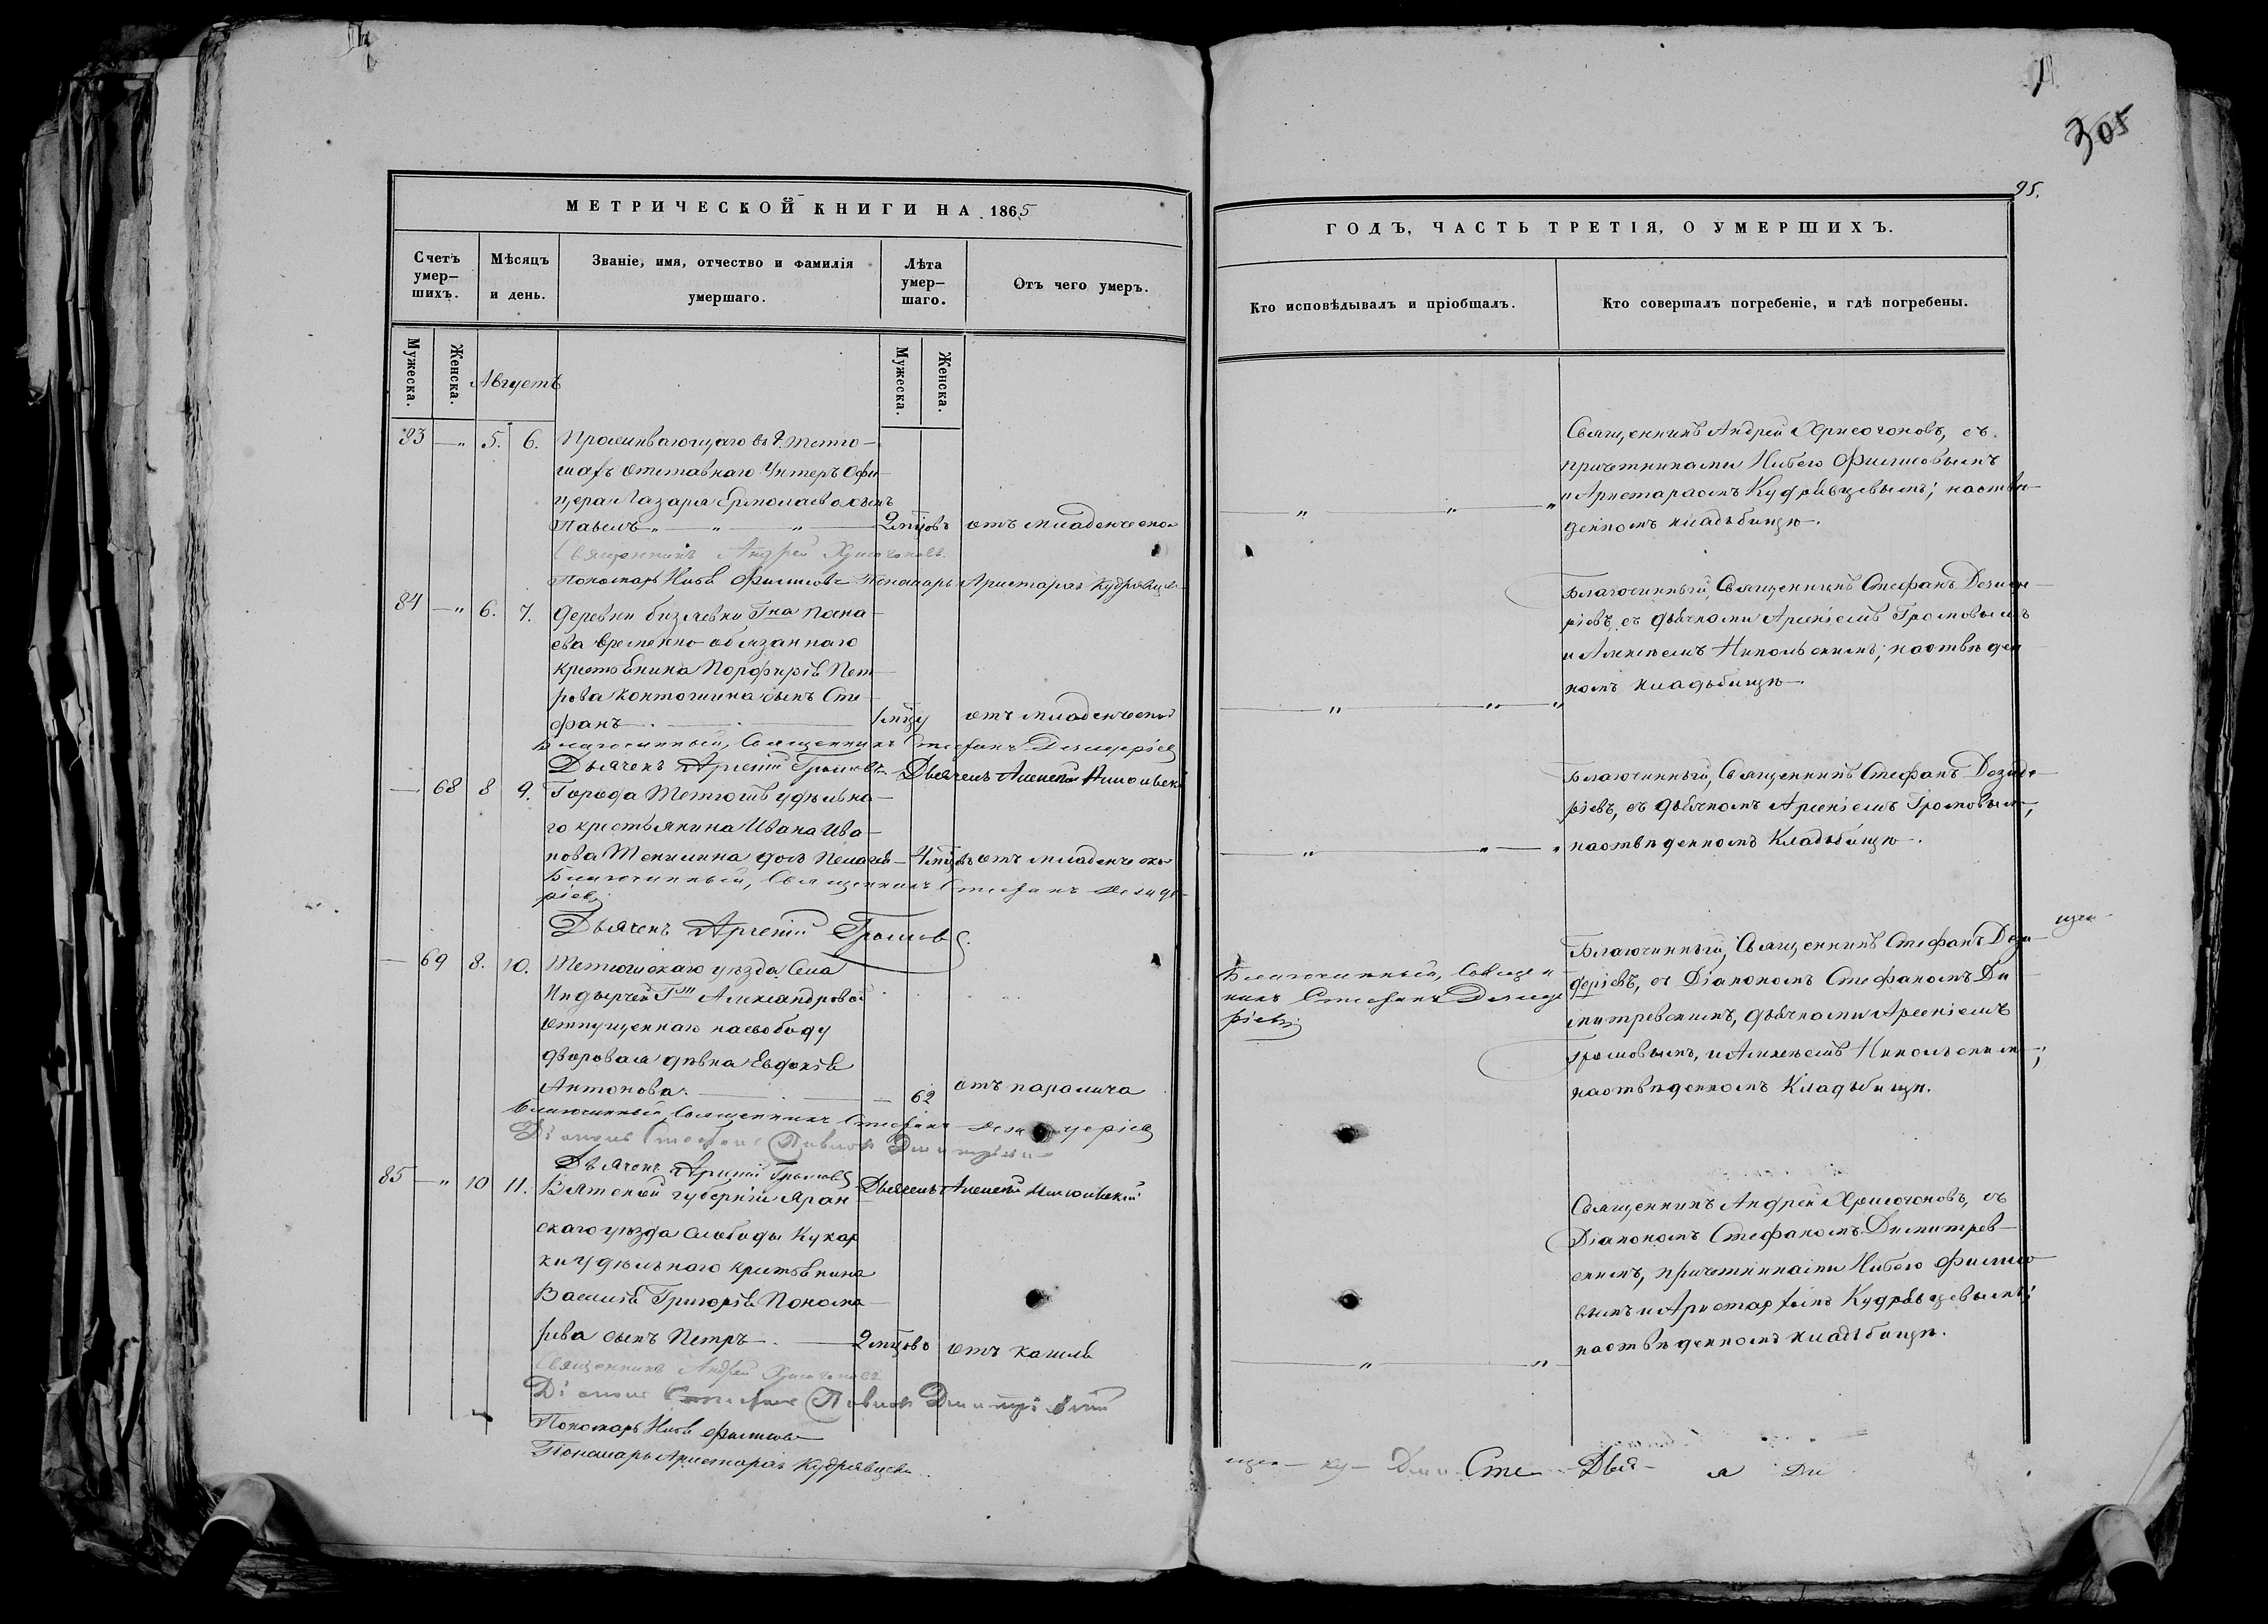 305
95.
МЕТРИЧЕСКОЙ КНИГИ НА 1865
Счетъ умер–шихъ.
Мѣсяцъ и день.
Званіе, имя, отчество и фамилія умершаго.
Лѣта умер–шаго.
Отъ чего умеръ.
Мужеска.
Женска.
Августъ
Мужеска.
Женска.
83 — " 5. 6. Проживающаго въ г. Тетю–
шахъ отставнаго Унтеръ Офи
цера Лазаря Ермолаева сынъ
Павелъ " — " — " — 2 мцовъ отъ младенческой
Священникъ Андрей Хрисогоновъ
Пономарь Ниѳъ Филиповъ Пономарь Аристархъ Кудрявцевъ
84 — " 6. 7. Деревни Бизяевки Гна
ева временно обязаннаго
крестьянина Порфирія Пет
рова сынъ Сте
фанъ 1 мцу отъ младенческой
Благочинный, Священникъ Стефанъ Дезидеріевъ
Дьячекъ Арсеній Громовъ Дьячекъ Алексѣй Никольскій
— 68 8 9. Города Тетюшъ удѣльна–
го крестьянина Ивана Ива–
нова дочь Пелагія 4 мцовъ отъ младенческой
Благочинный, Священникъ Стефанъ Дезиде–
ріевъ
Дьячекъ Арсеній Громовъ
— 69 8. 10. Тетюшскаго уѣзда Села
Индырчей Гжи Александровой
отпущенная насвободу
дворовая дѣвка Евдокія
Антонова. — 62 отъ паралича
Благочинный Священникъ Стефанъ Дезидеріевъ
Діаконъ Стефанъ Павловъ
Дьячекъ Арсеній Громовъ
Дьячекъ Алексѣй Никольскій
85 — " 10 11. Вятской губерніи Яран
скаго уѣзда Слободы Кукар
ки удѣльнаго крестьянина
Василія Григорьева Понома–
рева сынъ Петръ — 2 мцовъ отъ кашля
Священникъ Андрей Хрисогоновъ
Діаконъ Стефанъ Павловъ
Пономарь Ниѳъ Филиповъ
Пономарь Аристархъ Кудрявцевъ
ГОДЪ, ЧАСТЬ ТРЕТІЯ, О УМЕРШИХЪ.
Кто исповѣдывалъ и пріобщалъ.
Кто совершалъ погребеніе, и гдѣ погребены.
Священникъ Андрей Хрисогоновъ, съ
причетниками Филиповымъ
и Аристархомъ Кудрявцевымъ; наотве–
денномъ кладбищѣ.
Благочинный, Священникъ Стефанъ Дезиде–
ріевъ, съ дьячками Арсеніемъ Громовымъ
и Алексѣемъ Никольскимъ; наотведен
номъ кладьбищѣ.
Благочинный, Священникъ Стефанъ Дезиде–
ріевъ, съ дьячкомъ Арсеніемъ Громовымъ,
наотведенномъ Кладьбищѣ.
Благочинный, Священ
никъ Стефанъ Дезиде
ріевъ
Благочинный, Священникъ Стефанъ Дези–
деріевъ, съ Діакономъ Стефаномъ Ди
митревскимъ, дьячками Арсеніемъ
Громовымъ, и Алексѣемъ Никольскимъ;
наотведенномъ Кладьбищѣ.
Священникъ Андрей Хрисогоновъ, съ
Діакономъ Стефаномъ Димитрев–
скимъ, причетниками Филипо
вымъ и Аристархомъ Кудрявцевымъ;
наотведенномъ кладьбищѣ.
щен – ку – Дми Сте – Дья – я Ди